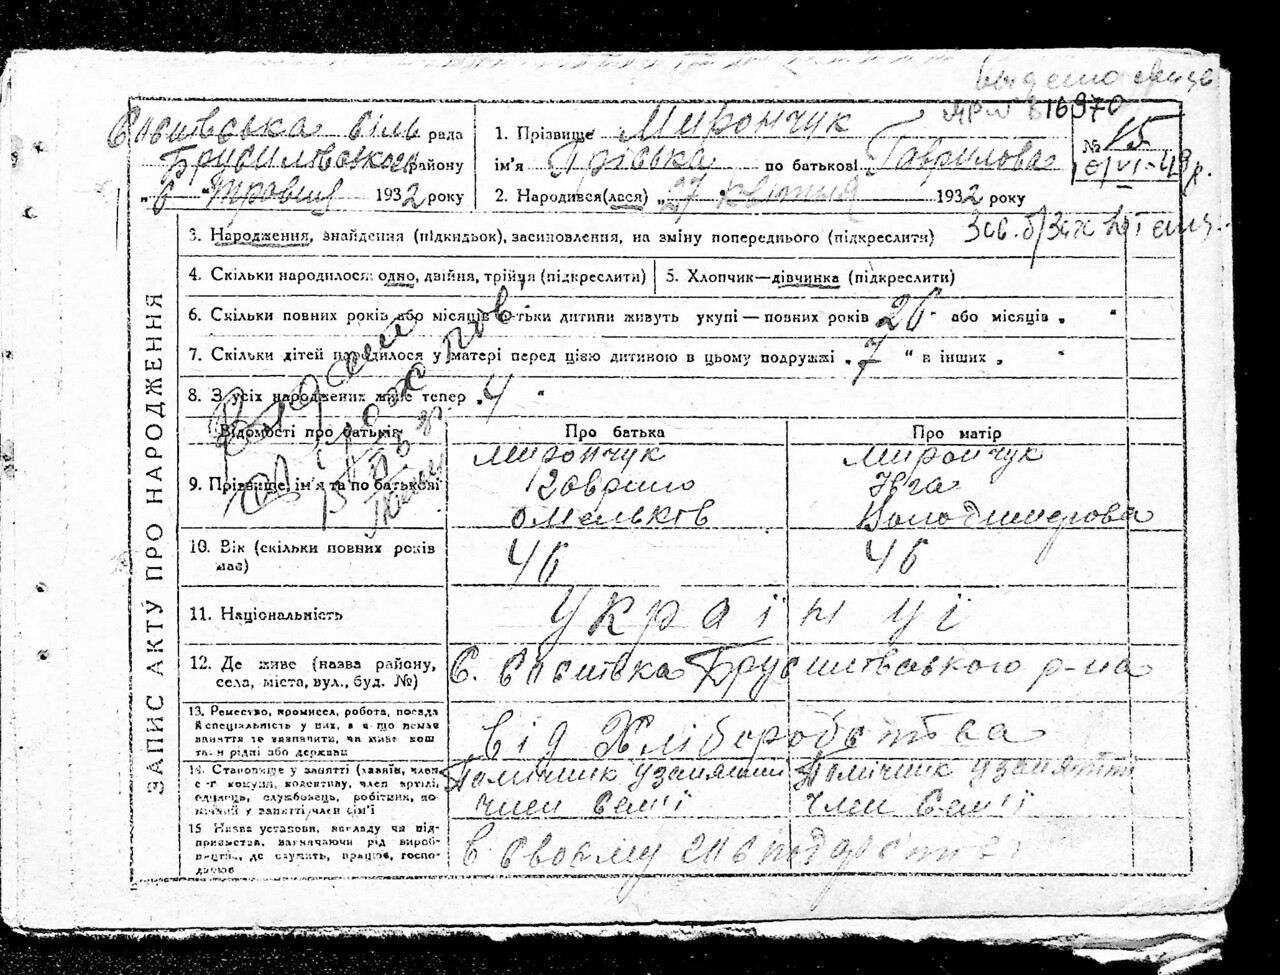 видено
№ 16970
сіль рада
Брусилівського району
„6" травня 1932 року
1. Прізвище Мирончук
ім'я Пріська по батькові Гаврилова
2. Народився(лася) „27" квітня 1932 року
№ 15
VI-49р.
3. Народження, знайдення (підкидьок), засиновлення, на зміну попереднього (підкреслити)
4. Скільки народилося: одно, двійня, трійця (підкреслити)
5. Хлопчик—дівчинка (підкреслити)
6. Скільки повних років або місяців батьки дитини живуть укупі — повних років 26 або місяців „ "
7. Скільки дітей народилося у матері перед цією дитиною в цьому подружжі „7" в інших „ "
8. З усіх народжених живе тепер „4"
ЗАПИС АКТУ ПРО НАРОДЖЕННЯ
Відомості про батьків
Про батька
Про матір
9. Прізвище, ім'я та по батькові
Мирончук
Гаврило
Омельков
Мирончук
Юга
Володимирова
10. Вік (скільки повних років має)
46
46
11. Національність
Українці
12. Де живе (назва району,
села, міста, вул., буд. №)
С. Брусилівського р-на
13. Ремество, промисел, робота, посада
й спеціальність у них, а що немає
заняття те зазначити, чи живе кош
там рідні або держави
від Хліборобства
14. Становище у занятті (хазяїн, член
с-г комуни, колективу, член артілі,
одинець, службовець, робітник, по-
мічний у занятті член сім'ї
Помічник у занятті
член сем'ї
Помічник у занятті
член сем'ї
15 Назва установи, закладу чи під-
приємства, зазначаючи рід вироб-
ництва, де служить, працює, госпо-
дарює
в своєму господрстві